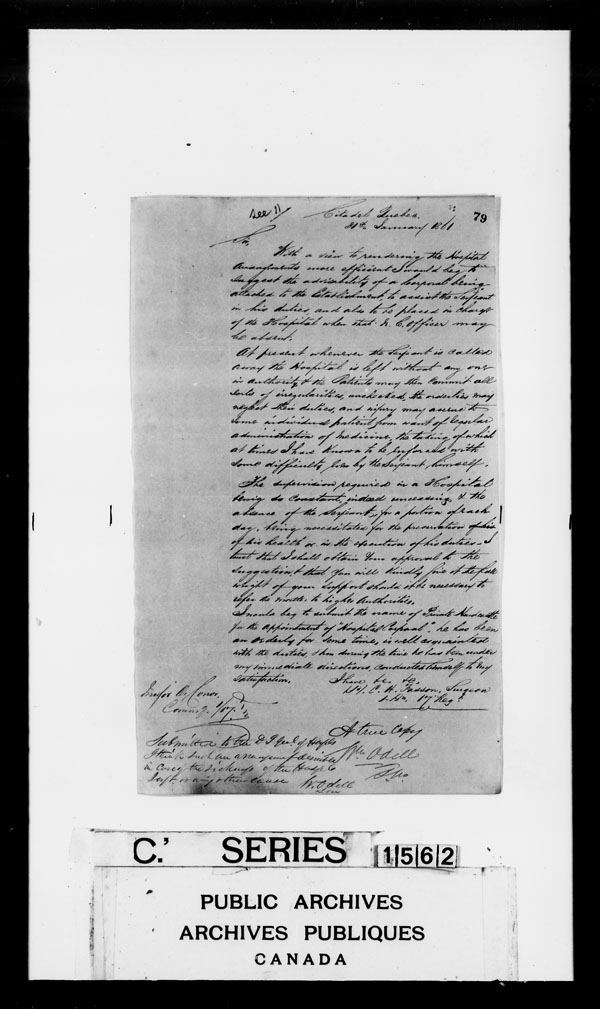 See 11/
79
Citadel Quebec.
20th January 1861
Sir,
With a view to rendering the Hospital
Arrangements more efficient I would beg to
suggest the advisability of a Corporal being
attached to the Establishment, to assist the Serjeant
in his duties, and also to be placed in charge
of the Hospital when that N. C. Officer may
be absent.
At present whenever the Serjeant is called
away the Hospital is left without any one
in authority, & the Patients may then commit all
sorts of irregularities, unchecked, the orderlies may
neglect their duties, and injury may accrue to
some individual patient from want of regular
administration of medicine, the taking of which
at times I have known to be enforced with
some difficulty, even by the Serjeant himself.
The supervision required in a Hospital
being so constant, indeed unceasing, & the
absence of the Serjeant, for a portion of each
day, being necessitated for the preservation of his
of his health or in the execution of his duties. I
trust that I shall obtain your approval to the
suggestion, & that you will kindly give it the full
weight of your support should it be necessary to
refer the matter to higher Authorities.
I would beg to submit the name of Private
for the appointment of "Hospital Corporal" he has been
an orderly for some time, is well acquainted
with the duties & has during the time he has been under
my immediate directions, conducted himself to my
satisfaction.
I have &c. &c.
C. H. Fasson, Surgeon
17 Reg.
Major
Comm.g 1/17.
A true Copy
Wm Odell
Submitted to the D I Genl of Hospls
I think such an arrangement desirable
in case of the sickness of the Hospl
Sergt or any other cause
W. Odell
C.' SERIES 1562
PUBLIC ARCHIVES
ARCHIVES PUBLIQUES
CANADA